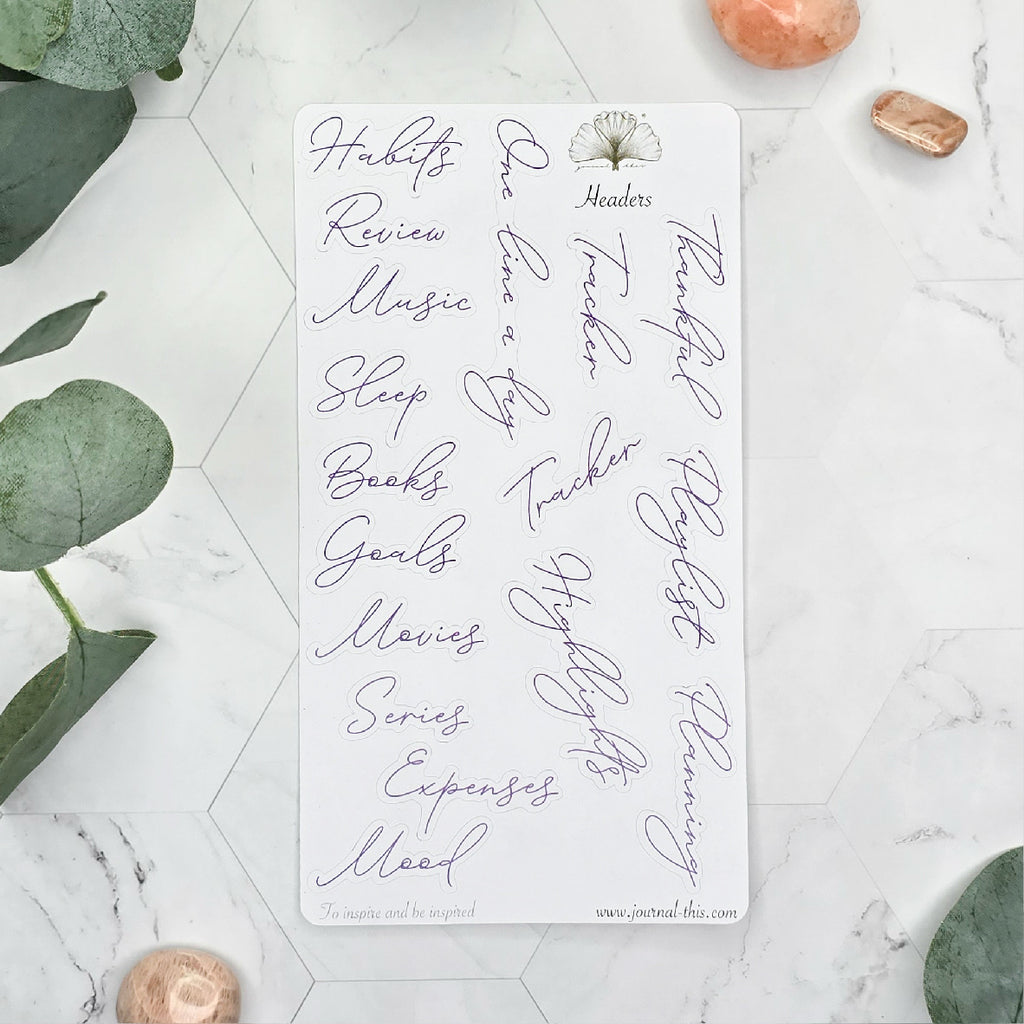 Habits
Review
Music
Sleep
Books
Goals
Movies
Series
Expenses
Mood
One line a day
Headers
Tracker
Thankful
Tracker
Highlights
Playlist
Planning
To inspire and be inspired
www.journal-this.com